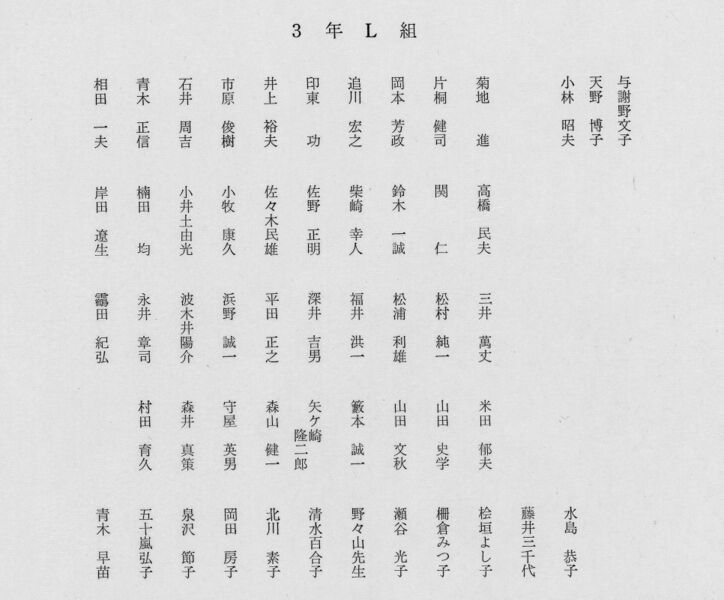 3年L組
相田 一夫
青木 正信
石井 周吉
市原 俊樹
井上 裕夫
印東 功
追川 宏之
岡本 芳政
片桐 健司
菊地 進
小林 昭夫
天野 博子
与謝野文子
岸田 遼生
楠田 均
小井土由光
小牧 康久
佐々木民雄
佐野 正明
柴崎 幸人
鈴木 一誠
関 仁
高橋 民夫
靏田 紀弘
永井 章司
波木井陽介
浜野 誠一
平田 正之
深井 吉男
福井 洪一
松浦 利雄
松村 純一
三井 萬丈
村田 育久
森井 真策
守屋 英男
森山 健一
矢ケ崎
隆二郎
籔本 誠一
山田 文秋
山田 史学
米田 郁夫
青木 早苗
五十嵐弘子
泉沢 節子
岡田 房子
北川 素子
清水百合子
野々山先生
瀬谷 光子
柵倉みつ子
桧垣よし子
藤井三千代
水島 恭子